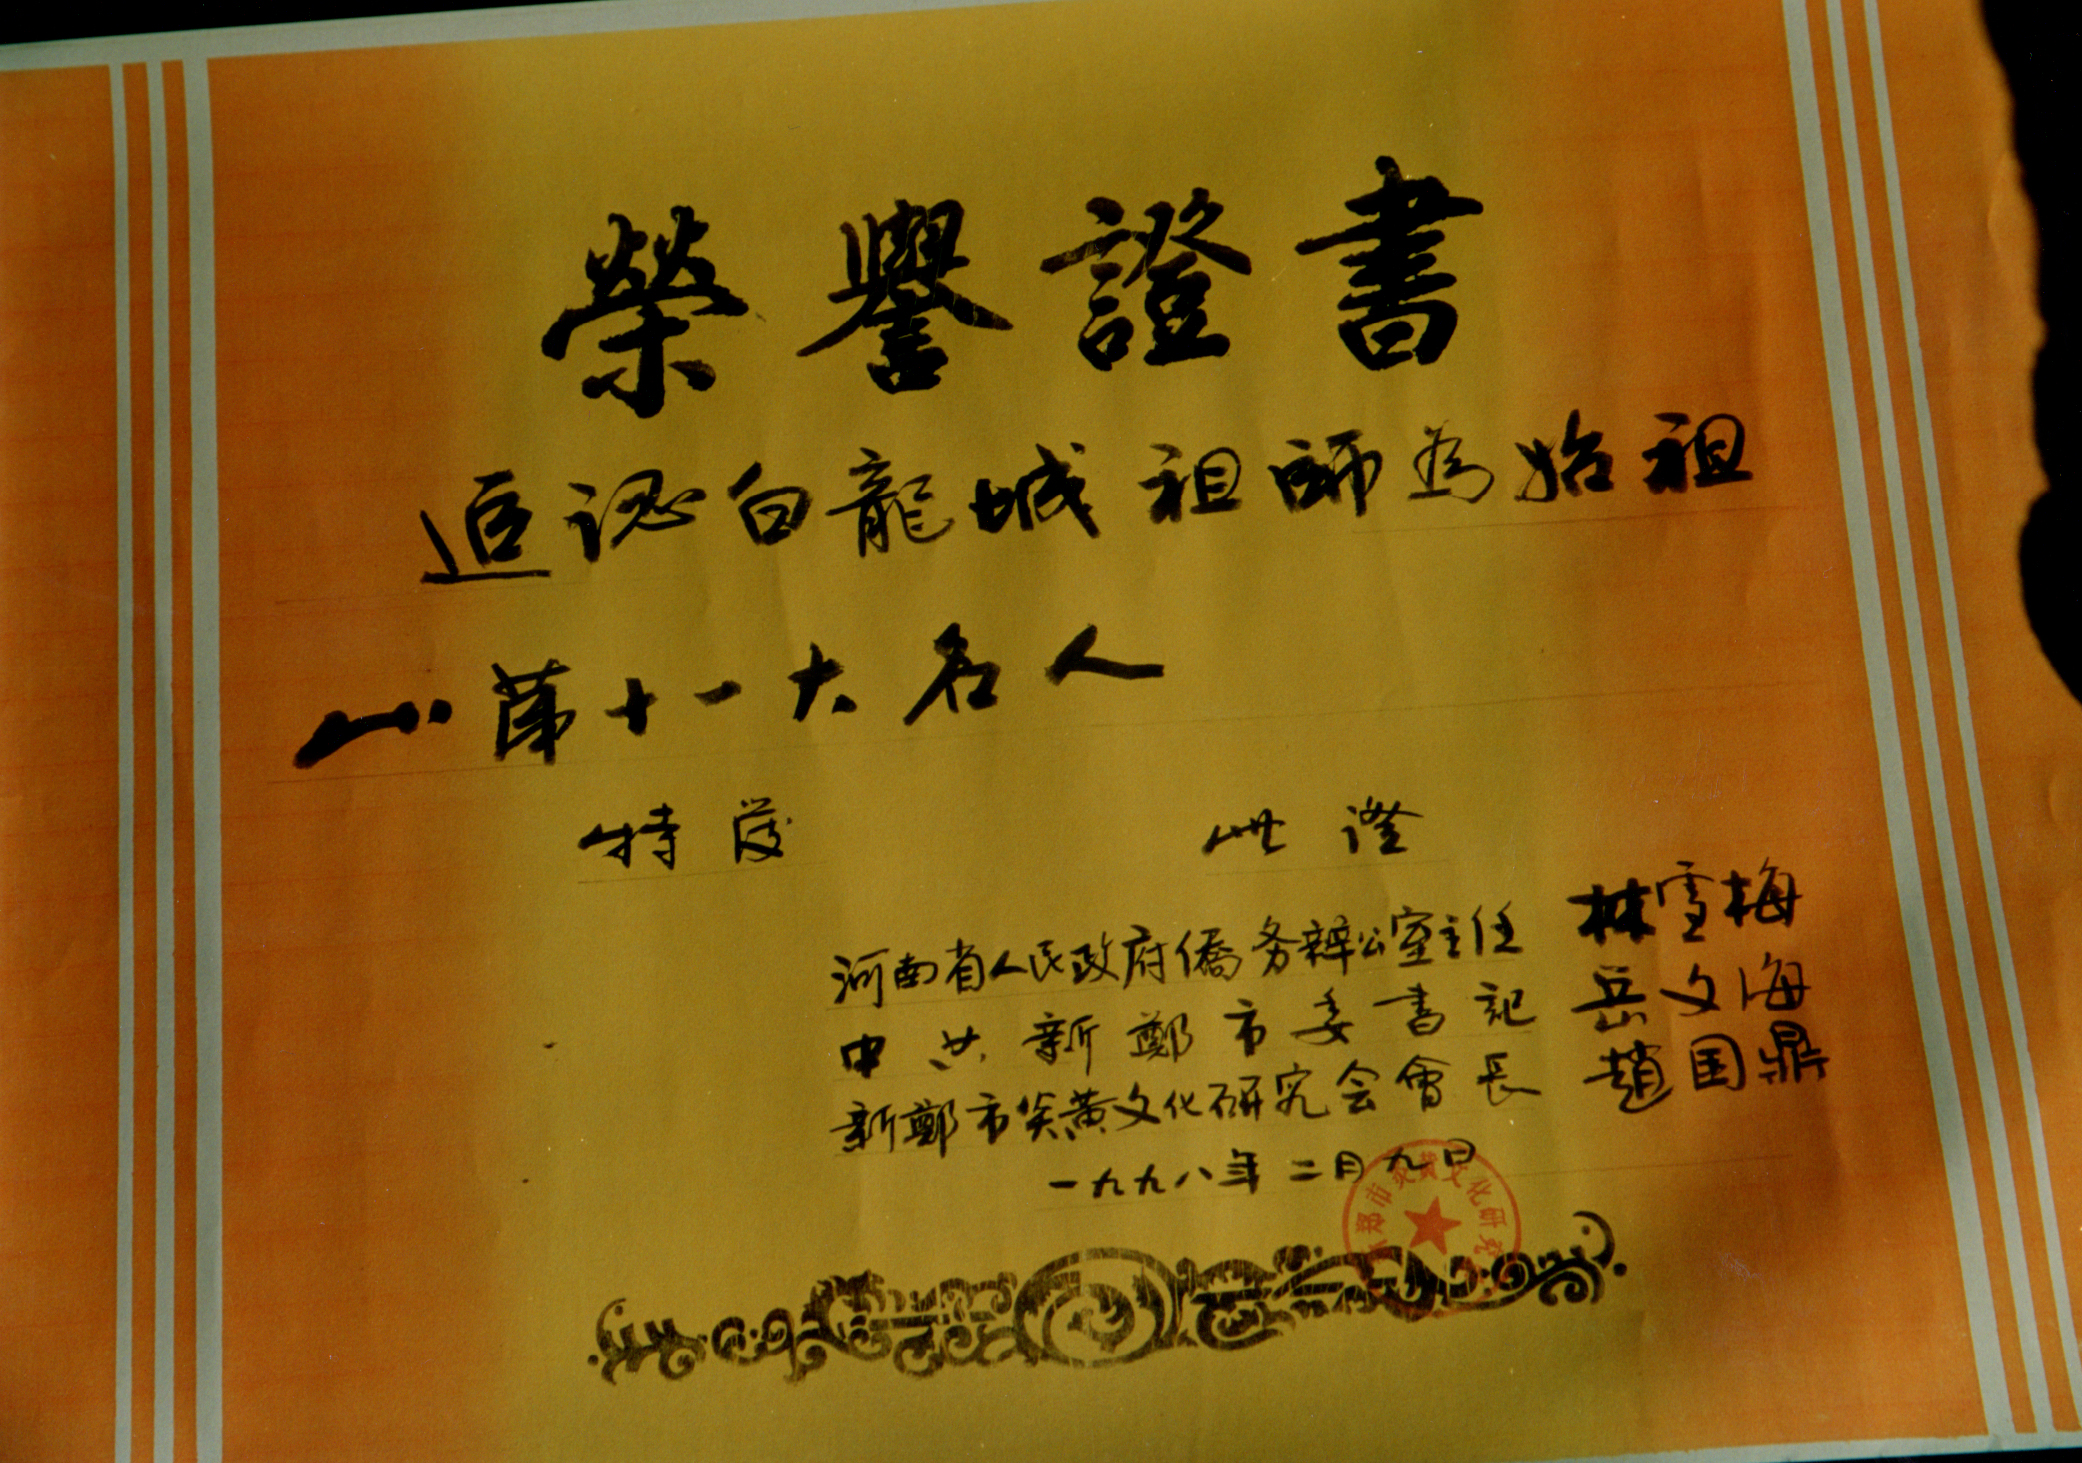 榮譽證書
追認白龍城祖師為始祖
第十一大名人
特發 此證
河南省人民政府僑务辦公室主任 林雪梅
中共新鄭市委書記 岳文海
新鄭市炎黃文化研究会會長 趙国鼎
一九九八年二月九日
新郑市炎黄文化研究